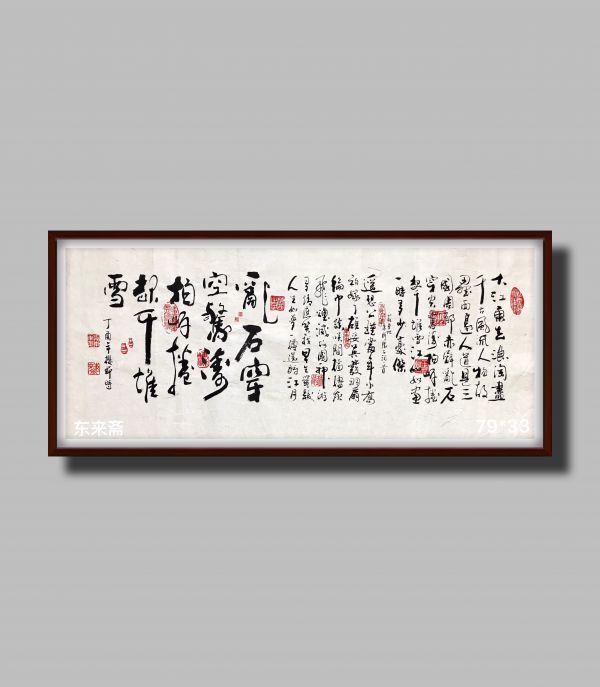 大江東去浪淘盡
千古風流人物故
壘西邊人道是三
國周郎赤壁亂石
穿空驚濤拍岸捲
起千堆雪江山如畫
一時多少豪傑
遙想公謹當年小喬
初嫁了雄姿英發羽扇
綸巾談笑間檣櫓灰
飛煙滅故國神遊
多情應笑我早生華髮
人生如夢一樽還酹江月
亂石穿
空驚濤
拍岸捲
起千堆
雪
丁酉年
东来斋
79*33